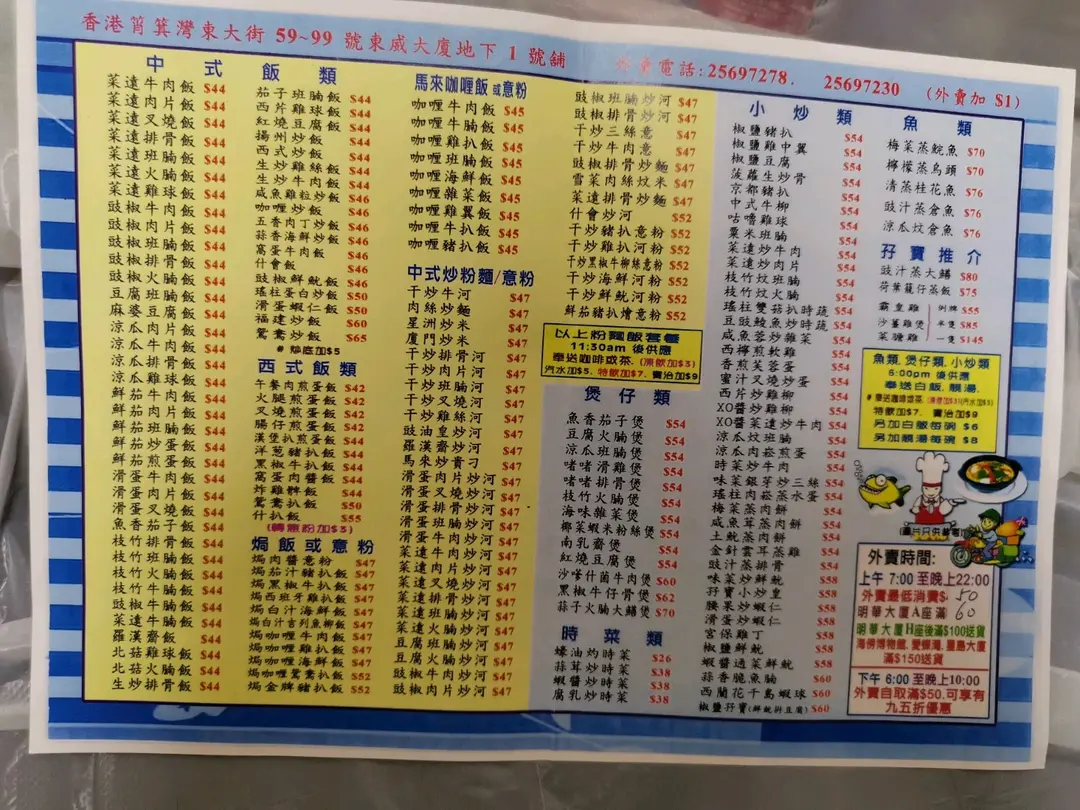 香港筲箕灣東大街 59~99 號東威大廈地下 1 號舖
外賣電話:25697278. 25697230 (外賣加 $1)
中式飯類
菜遠牛肉飯 $44
菜遠肉片飯 $44
菜遠叉燒飯 $44
菜遠排骨飯 $44
菜遠班腩飯 $44
菜遠火腩飯 $44
菜遠雞球飯 $44
豉椒牛肉飯 $44
豉椒肉片飯 $44
豉椒班腩飯 $44
豉椒排骨飯 $44
豉椒火腩飯 $44
豆腐班腩飯 $44
麻婆豆腐飯 $44
涼瓜肉片飯 $44
涼瓜牛肉飯 $44
涼瓜排骨飯 $44
涼瓜雞球飯 $44
鮮茄牛肉飯 $44
鮮茄肉片飯 $44
鮮茄班腩飯 $44
鮮茄炒蛋飯 $44
鮮茄煎蛋飯 $44
滑蛋牛肉飯 $44
滑蛋肉片飯 $44
滑蛋叉燒飯 $44
魚香茄子飯 $44
枝竹排骨飯 $44
枝竹班腩飯 $44
枝竹火腩飯 $44
枝竹牛腩飯 $44
豉椒牛腩飯 $44
菜遠牛腩飯 $44
羅漢齋飯 $44
北菇雞球飯 $44
北菇火腩飯 $44
生炒排骨飯 $44
茄子班腩飯 $44
西片雞球飯 $44
紅燒豆腐飯 $44
揚州炒飯 $44
西式炒飯 $44
生炒雞絲飯 $44
生炒牛肉飯 $44
咸魚雞粒炒飯 $46
咖喱炒飯 $46
五香肉丁炒飯 $46
蒜香海鮮炒飯 $46
窩蛋牛肉飯 $46
什會飯 $46
豉椒鮮魷飯 $46
瑤柱蛋白炒飯 $50
滑蛋蝦仁飯 $50
福建炒飯 $60
鴛鴦炒飯 $65
# 焗底加$5
西式飯類
午餐肉煎蛋飯 $42
火腿煎蛋飯 $42
叉燒煎蛋飯 $42
腸仔煎蛋飯 $42
漢堡扒煎蛋飯 $44
洋葱豬扒飯 $44
黑椒牛扒飯 $44
窩蛋肉醬飯 $44
炸雞髀飯 $44
鴛鴦扒飯 $50
什扒飯 $55
(轉意粉加$3)
焗飯或意粉
焗肉醬意粉 $47
焗茄汁豬扒飯 $47
焗黑椒牛扒飯 $47
焗西班牙雞扒飯 $47
焗白汁海鮮飯 $47
焗白汁吉列魚柳飯 $47
焗咖喱牛肉飯 $47
焗咖喱雞扒飯 $47
焗咖喱海鮮飯 $47
焗咖喱鴛鴦扒飯 $52
焗金牌豬扒飯 $52
馬來咖喱飯 或意粉
咖喱牛肉飯 $45
咖喱牛腩飯 $45
咖喱雞扒飯 $45
咖喱班腩飯 $45
咖喱海鮮飯 $45
咖喱雜菜飯 $45
咖喱雞翼飯 $45
咖喱牛扒飯 $45
咖喱豬扒飯 $45
中式炒粉麵/意粉
干炒牛河 $47
肉絲炒麵 $47
星洲炒米 $47
廈門炒米 $47
干炒排骨河 $47
干炒肉片河 $47
干炒叉燒河 $47
干炒雞絲河 $47
豉油皇炒河 $47
羅漢齋炒河 $47
馬來炒貴刁 $47
滑蛋肉片炒河 $47
滑蛋叉燒炒河 $47
滑蛋排骨炒河 $47
滑蛋班腩炒河 $47
滑蛋牛肉炒河 $47
菜遠牛肉炒河 $47
菜遠肉片炒河 $47
菜遠叉燒炒河 $47
菜遠排骨炒河 $47
菜遠班腩炒河 $47
菜遠火腩炒河 $47
豆腐班腩炒河 $47
豆腐火腩炒河 $47
豉椒牛肉炒河 $47
豉椒肉片炒河 $47
豉椒班腩炒河 $47
豉椒排骨炒河 $47
干炒三絲意 $47
干炒牛肉意 $47
豉椒排骨炒麵 $47
雪菜肉絲炆米 $47
菜遠排骨炒麵 $47
什會炒河 $52
干炒豬扒意粉 $52
干炒雞扒河粉 $52
干炒黑椒牛柳絲意粉 $52
干炒海鮮河粉 $52
干炒鮮魷河粉 $52
鮮茄豬扒燴意粉 $52
以上粉麵飯套餐
11:30am 後供應
奉送咖啡或茶. (凍飲加$3)
汽水加$5. 特飲加$7. 賓治加$9
煲仔類
魚香茄子煲 $54
豆腐火腩煲 $54
涼瓜班腩煲 $54
啫啫滑雞煲 $54
啫啫排骨煲 $54
枝竹火腩煲 $54
海味雜菜煲 $54
椰菜蝦米粉絲煲 $54
南乳齋煲 $54
紅燒豆腐煲 $54
沙嗲什菌牛肉煲 $60
黑椒牛仔骨煲 $62
蒜子火腩大鱔煲 $70
時菜類
蠔油灼時菜 $26
蒜茸炒時菜 $38
蝦醬炒時菜 $38
腐乳炒時菜 $38
小炒類
椒鹽豬扒 $54
椒鹽雞中翼 $54
椒鹽豆腐 $54
菠蘿生炒骨 $54
京都豬扒 $54
中式牛柳 $54
咕嚕雞球 $54
粟米班腩 $54
菜遠炒牛肉 $54
菜遠炒肉片 $54
枝竹炆班腩 $54
枝竹炆火腩 $54
瑤柱雙菇扒時蔬 $54
豆豉鯪魚炒時蔬 $54
咸魚蓉炒雜菜 $54
西檸煎軟雞 $54
香煎芙蓉蛋 $54
蜜汁叉燒炒蛋 $54
西片炒雞柳 $54
XO醬炒雞柳 $54
XO醬菜遠炒牛肉 $54
涼瓜炆班腩 $54
涼瓜肉崧煎蛋 $54
時菜炒牛肉 $54
味菜銀芽炒三絲 $54
瑤柱肉崧蒸水蛋 $54
梅菜蒸肉餅 $54
咸魚茸蒸肉餅 $54
土魷蒸肉餅 $54
金針雲耳蒸雞 $54
豉汁蒸排骨 $54
味菜炒鮮魷 $58
孖寶小炒皇 $58
腰果炒蝦仁 $58
滑蛋炒蝦仁 $58
宮保雞丁 $58
椒鹽鮮魷 $58
蝦醬通菜鮮魷 $58
蒜香脆魚腩 $60
西蘭花千島蝦球 $60
椒鹽孖寶(鮮魷拼豆腐) $60
魚類
梅菜蒸鯇魚 $70
檸檬蒸烏頭 $70
清蒸桂花魚 $76
豉汁蒸倉魚 $76
涼瓜炆倉魚 $76
孖寶推介
豉汁蒸大鱔 $80
荷葉籠仔蒸飯 $75
霸皇雞 例牌 $55
沙薑雞煲 半隻 $85
菜塘雞 一隻 $145
魚類, 煲仔類, 小炒類
6:00pm 後供應
奉送白飯, 靚湯.
# 奉送咖啡或茶. (凍飲加$3)(汽水加$5)
特飲加$7. 賓治加$9
另加白飯每碗 $6
另加靚湯每碗 $8
(圖片只供參考)
外賣時間:
上午 7:00 至晚上22:00
外賣最低消費$. 50
明華大廈A座滿 60
明華大廈H座後滿$100送貨
海傍博物館, 愛蝶灣, 星島大廈
滿$150送貨
下午 6:00 至晚上10:00
外賣自取滿$50.可享有
九五折優惠